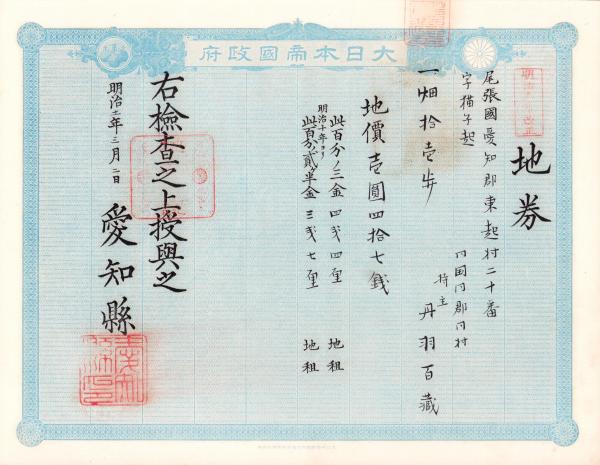 大日本帝國政府
地券
尾張國愛知郡東起村二十番
字猫子起
同国同郡同村
持主 丹羽百藏
一畑拾壱歩
地價壱圓四拾七錢
此百分ノ三金四戔四厘 地租
明治十年ヨリ
此百分ノ貳半金三戔七厘 地租
右檢查之上授與之
明治十二年三月二日
愛知縣